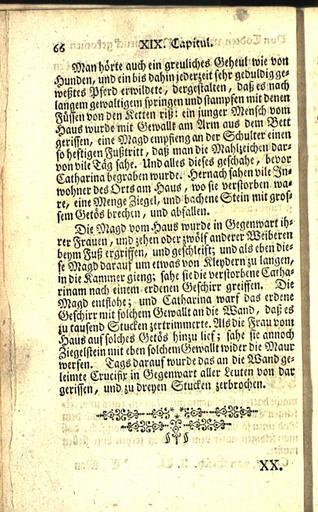 66 XIX. Capitul.
Man hörte auch ein greuliches Geheul wie von
Hunden, und ein bis dahin jederzeit sehr geduldig ge-
westes Pferd erwildete, dergestalten, daß es nach
langem gewaltigem springen und stampfen mit denen
Füssen von den Ketten riß: ein junger Mensch vom
Haus wurde mit Gewalt am Arm aus dem Bett
gerissen, eine Magd empfieng an der Schulter einen
so hefftigen Fußtritt, daß man die Mahlzeichen dar-
von vile Täg sahe. Und alles dieses geschahe, bevor
Catharina begraben wurde. Hernach sahen vile In-
wohner des Orts am Haus, wo sie verstorben wa-
re, eine Menge Ziegel, und bachene Stein mit gros-
sem Getös brechen, und abfallen.
Die Magd vom Haus wurde in Gegenwart ih-
rer Frauen, und zehen oder zwölf anderer Weiberen
beym Fuß ergriffen, und geschleift; und als eben die-
se Magd darauf um etwas von Kleydern zu langen,
in die Kammer gieng; sahe sie die verstorbene Catha-
rinam nach einem erdenen Geschirr greiffen. Die
Magd entflohe; und Catharina warf das erdene
Geschirr mit solchem Gewalt an die Wand, daß es
zu tausend Stucken zertrimmerte. Als die Frau vom
Haus auf solches Getös hinzu lief; sahe sie annoch
Ziegelstein mit eben solchem Gewalt wider die Maur
werfen. Tags darauf wurde das an die Wand ge-
leimte Crucifix in Gegenwart aller Leuten von dar
gerissen, und zu dreyen Stucken zerbrochen.
XX.